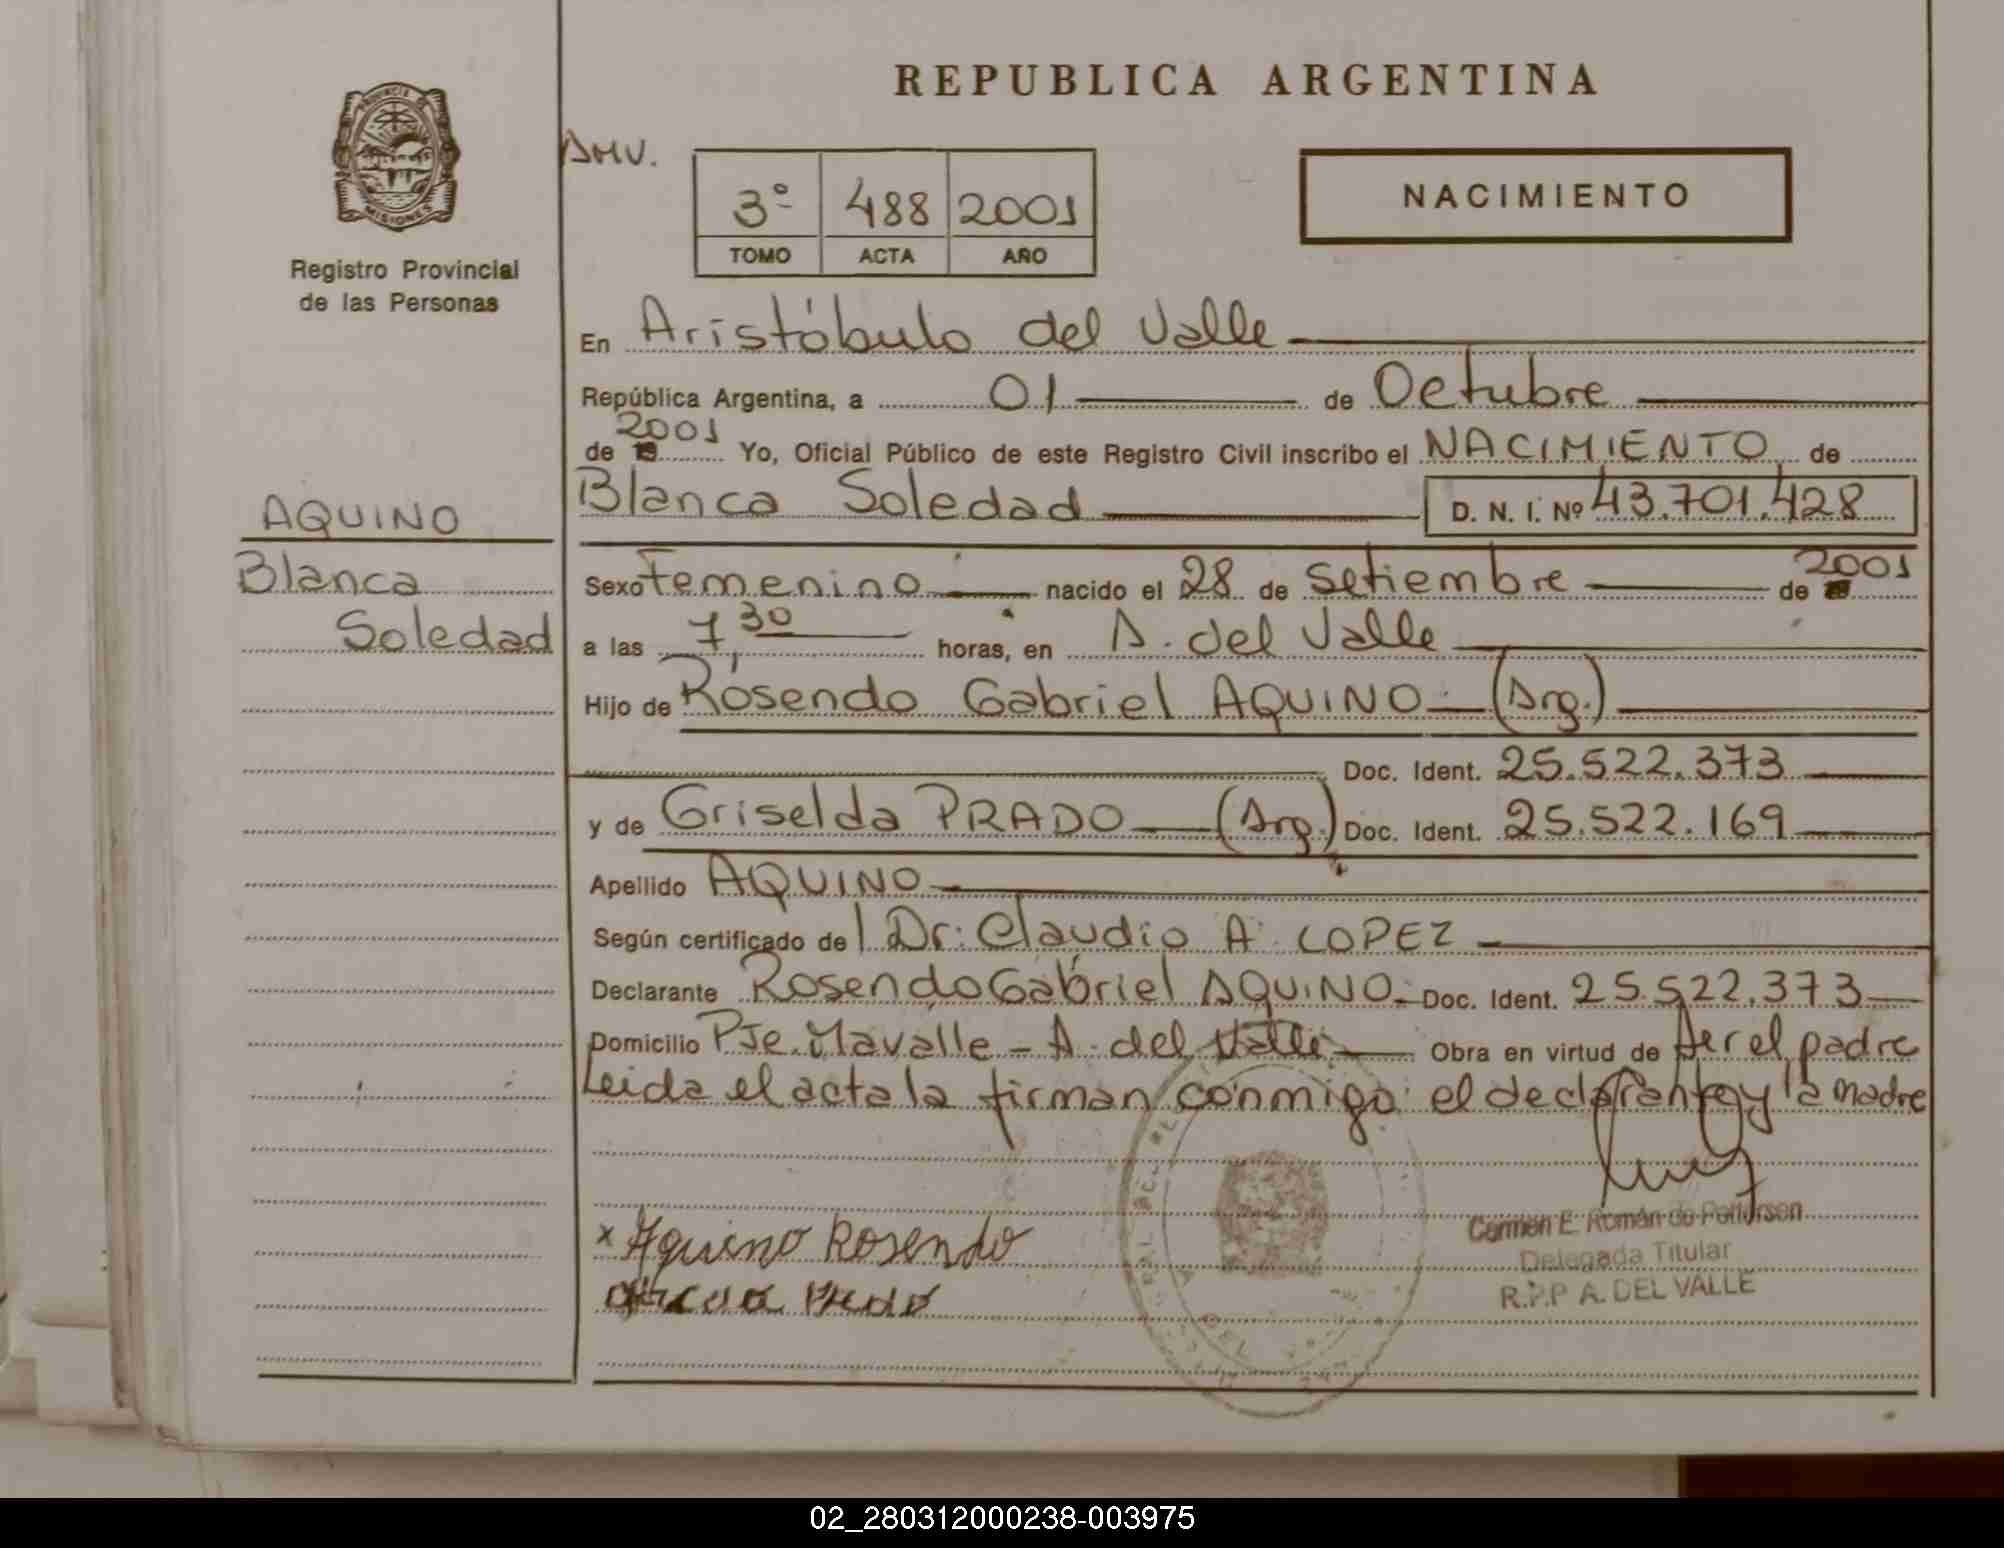 REPUBLICA ARGENTINA
PROVINCIA DE
MISIONES
Registro Provincial
de las Personas
3º 488 2001
TOMO ACTA AÑO
NACIMIENTO
En Aristóbulo del Valle
República Argentina, a 01 de Octubre
de 19 2001 Yo, Oficial Público de este Registro Civil inscribo el NACIMIENTO de
Blanca Soledad D. N. I. Nº 43.701.428
AQUINO
Blanca
Soledad
Sexo Femenino nacido el 28 de Setiembre de 2001
a las 7,30 horas, en A. del Valle
Hijo de Rosendo Gabriel AQUINO (Arg.)
Doc. Ident. 25.522.373
y de Griselda PRADO (Arg.) Doc. Ident. 25.522.169
Apellido AQUINO
Según certificado de Dr. Claudio A. LOPEZ
Declarante Rosendo Gabriel AQUINO Doc. Ident. 25.522.373
Domicilio Pje. Mavalle - A. del Valle Obra en virtud de ser el padre
Leida el acta la firman conmigo el declarante y la madre
x Aquino Rosendo
Carmen E. Román de
Delegada Titular
R.P.P A. DEL VALLE
02_280312000238-003975